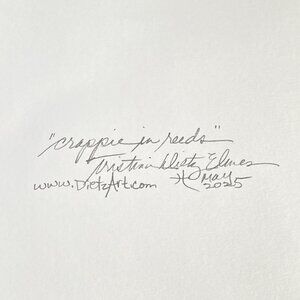 "crappie in reeds"
Kristin Dietz Elmes
www.DietzArt.com May
2025